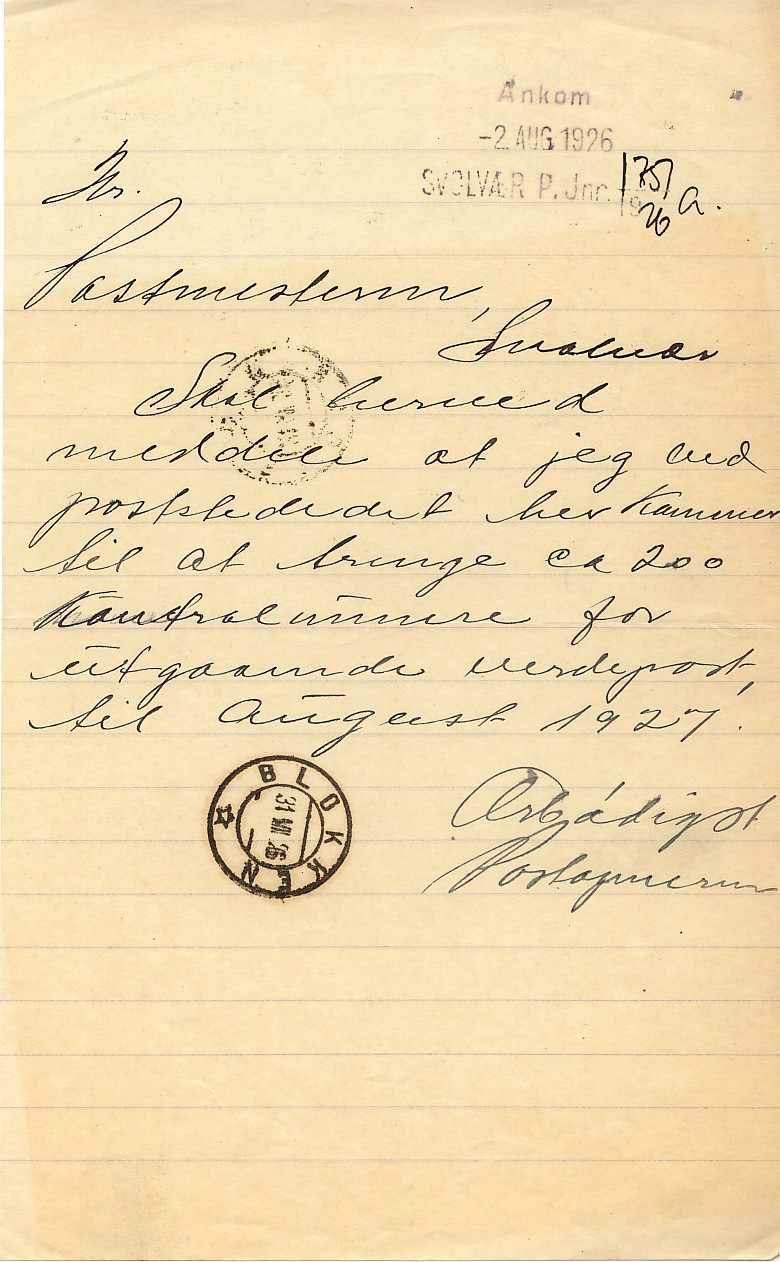 Ankom
-2 AUG 1926
SVOLVÆR P. Jnr. 175/1926 a.
Hr.
Postmesteren,
Svolvær
Skal herved
meddele at jeg ved
poststededet her kommer
til at trenge ca 200
kontrolnumere for
utgaaende verdipost,
til August 1927.
BLOKKEN
31 VII 26
Ærbødigst
Postopneren